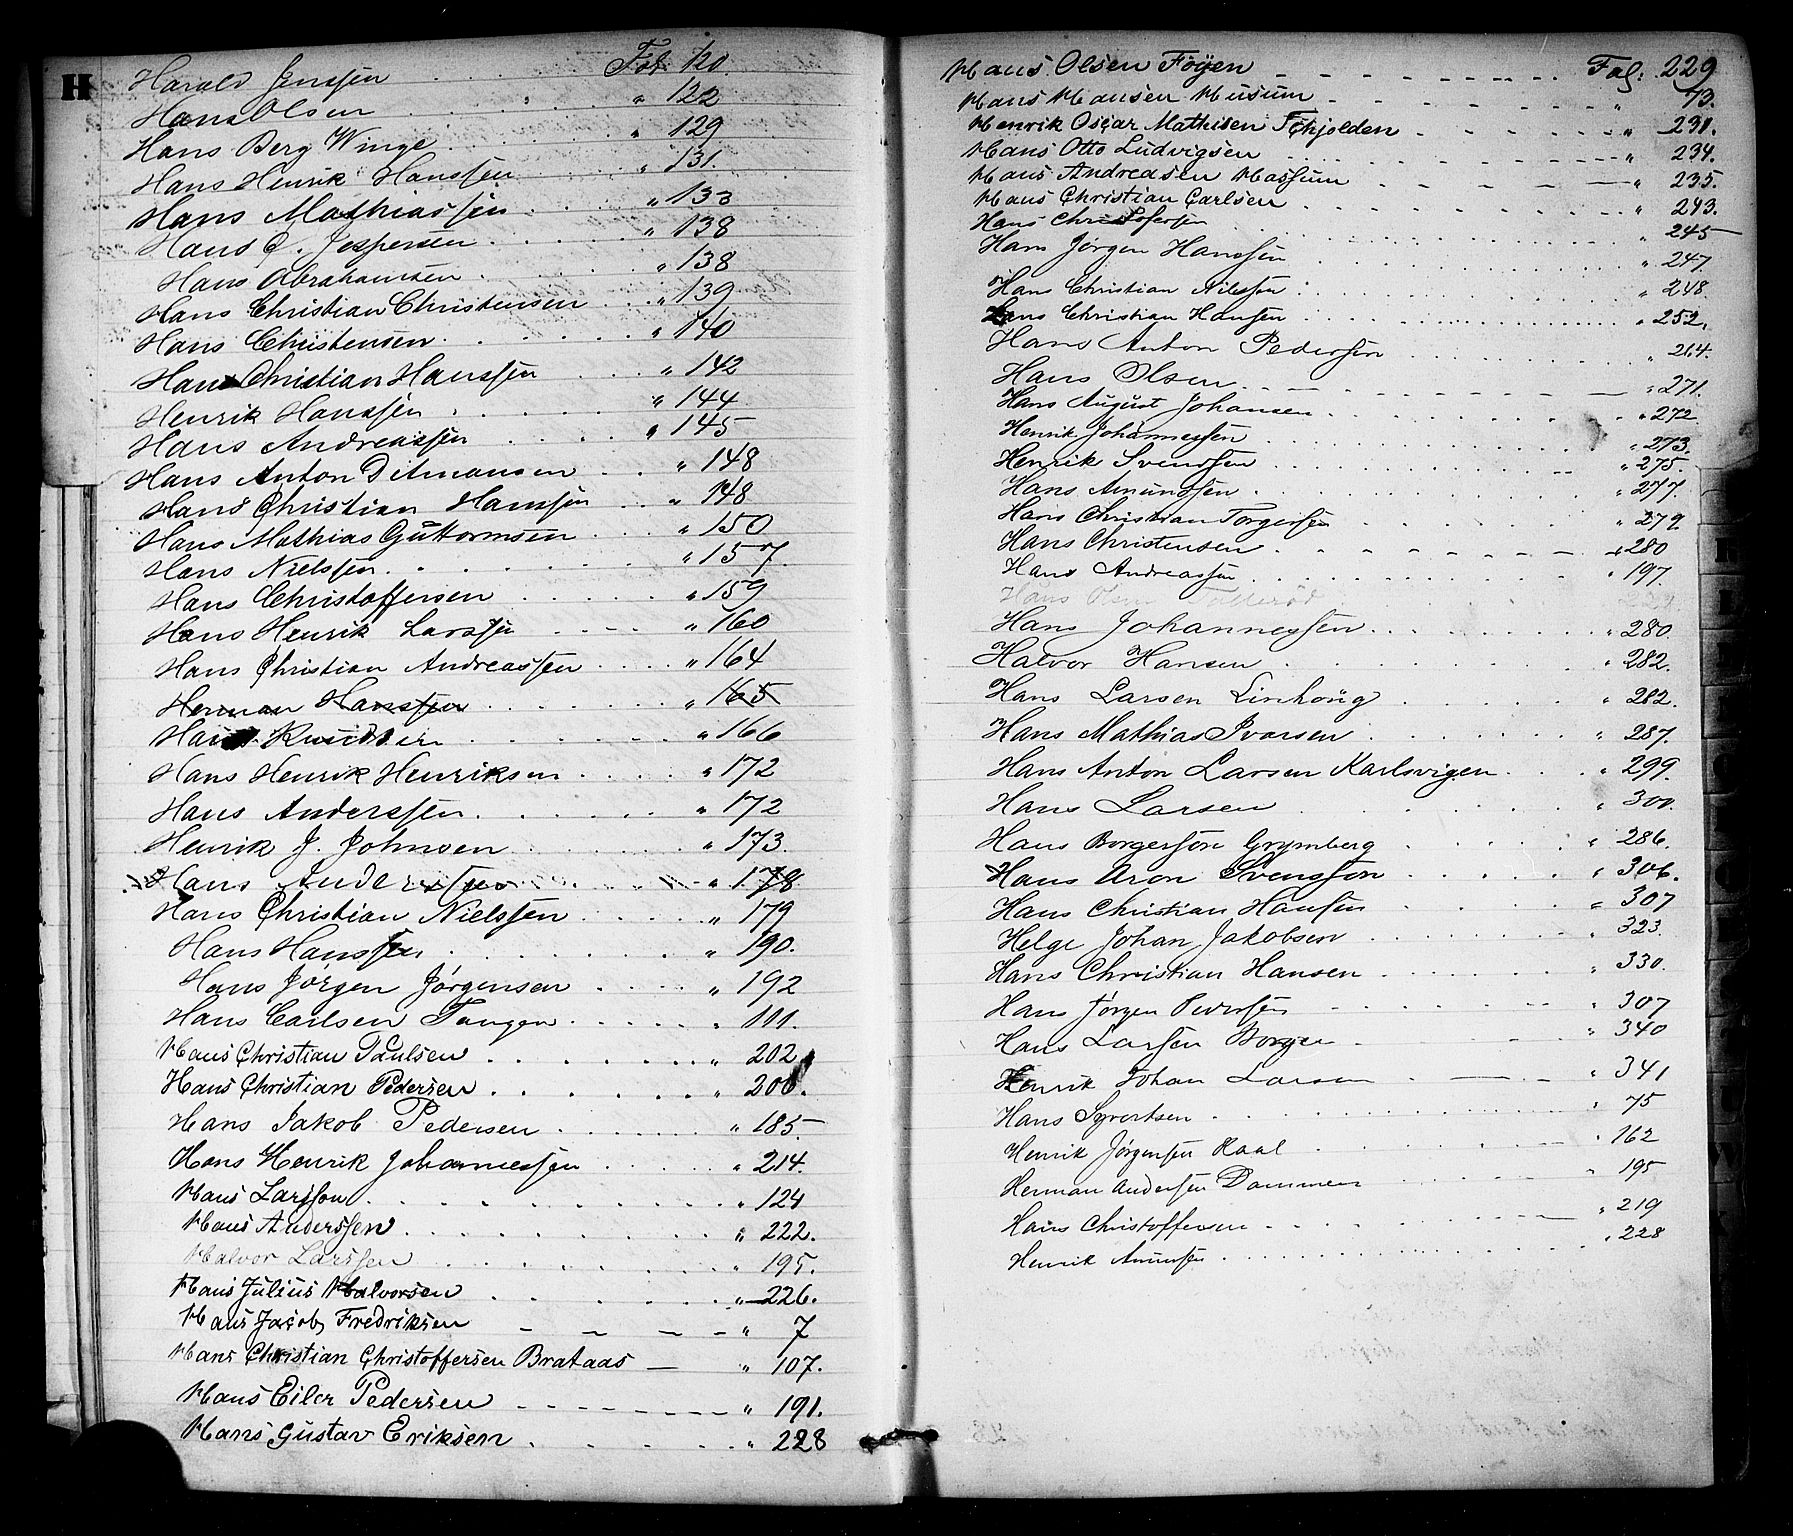 H
Harald Jenssen . . . . Fol. 120.
Hans Olsen . . . " 122
Hans Berg Winge . . . " 129
Hans Henrik Hanssen . . . " 131.
Hans Mathiassen . . . " 133
Hans C. Jespersen . . . " 138
Hans Abrahamsen . . . " 138
Hans Christian Christensen . . . " 139
Hans Christensen . . . " 140
Hans Christian Hanssen . . . " 142
Henrik Hanssen . . . " 144
Hans Andreassen . . . " 145
Hans Anton Ditmansen . . . " 148
Hans Christian Hanssen . . . " 148
Hans Mathias Guttormsen . . . " 150
Hans Nielssen . . . " 157.
Hans Christoffersen . . . " 159
Hans Henrik Larssen . . . " 160
Hans Christian Andreassen . . . " 164
Herman Hanssen . . . " 165
Hans Knudsen . . . " 166
Hans Henrik Henriksen . . . " 172
Hans Anderssen . . . " 172
Henrik J. Johnsen . . . " 173.
Hans Anderssen . . . " 178
Hans Christian Nielssen . . . " 179
Hans Hanssen . . . " 190.
Hans Jörgen Jörgensen . . . " 192
Hans Carlsen Tangen . . . " 111.
Hans Christian Paulsen . . . " 202
Hans Christian Pedersen . . . " 206.
Hans Jakob Pedersen . . . " 185.
Hans Henrik Johannessen . . . " 214.
Hans Larsson . . . " 124
Hans Anderssen . . . " 222.
Halvor Larssen . . . " 195.
Hans Julius Halvorsen . . . " 226.
Hans Jacob Fredriksen . . . " 7
Hans Christian Christoffersen Brataas — " 107.
Hans Eiler Pedersen . . . " 191.
Hans Gustav Eriksen . . . " 228
Hans Olsen Föyen . . . Fol. 229
Hans Hansen Husum . . . " 73.
Henrik Oscar Mathisen Tchjolden . . . " 231.
Hans Otto Ludvigsen . . . " 234.
Hans Andreasen Hassum . . . " 235.
Hans Christian Carlsen . . . " 243.
Hans Christofersen . . . " 245
Hans Jörgen Hanssen . . . " 247
Hans Christian Nilssen . . . " 248
Hans Christian Hansen . . . " 252.
Hans Anton Pedersen . . . " 264.
Hans Olsen . . . " 271.
Hans August Johansen . . . " 272
Henrik Johannessen . . . " 273.
Henrik Svendsen . . . " 275.
Hans Amundsen . . . " 277.
Hans Christian Torgersen . . . " 279.
Hans Christensen . . . " 280
Hans Andreassen . . . " 197.
Hans Olsen
Hans Johannessen . . . " 280.
Halvor Hansen . . . " 282.
Hans Larsen Linhöug . . . " 282.
Hans Mathias Ivarsen . . . " 287.
Hans Anton Larsen Karlsvigen . . . " 299.
Hans Larsen . . . " 300.
Hans Borgersön Grymberg . . . " 286.
Hans Aron Svensson . . . " 306.
Hans Christian Hansen . . . " 307
Helge Johan Jakobsen . . . " 323.
Hans Christian Hansen . . . " 330.
Hans Jörgen Pedersen . . . " 307
Hans Larsen Borgen . . . " 340
Henrik Johan Larsen . . . " 341
Hans Syvertsen . . . " 75
Henrik Jörgensen Raal . . . " 162
Herman Andersen Dammen . . . " 195
Hans Christoffersen . . . " 219
Henrik Amundsen . . . " 228